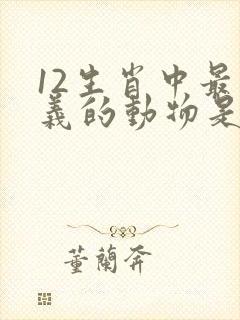 12生肖中最
義的動物是
董蘭奔